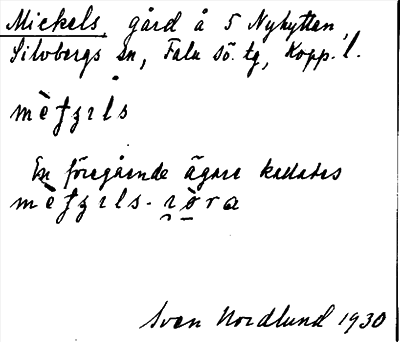 Mickels, gård å 5 Nyhyttan,
Silvbergs sn, Falu sö. tg, Kopp. l.
mèʈʒɩls
En föregående ägare kallades
mèʈʒɩls-ɩ̯òra
Sven Nordlund 1930